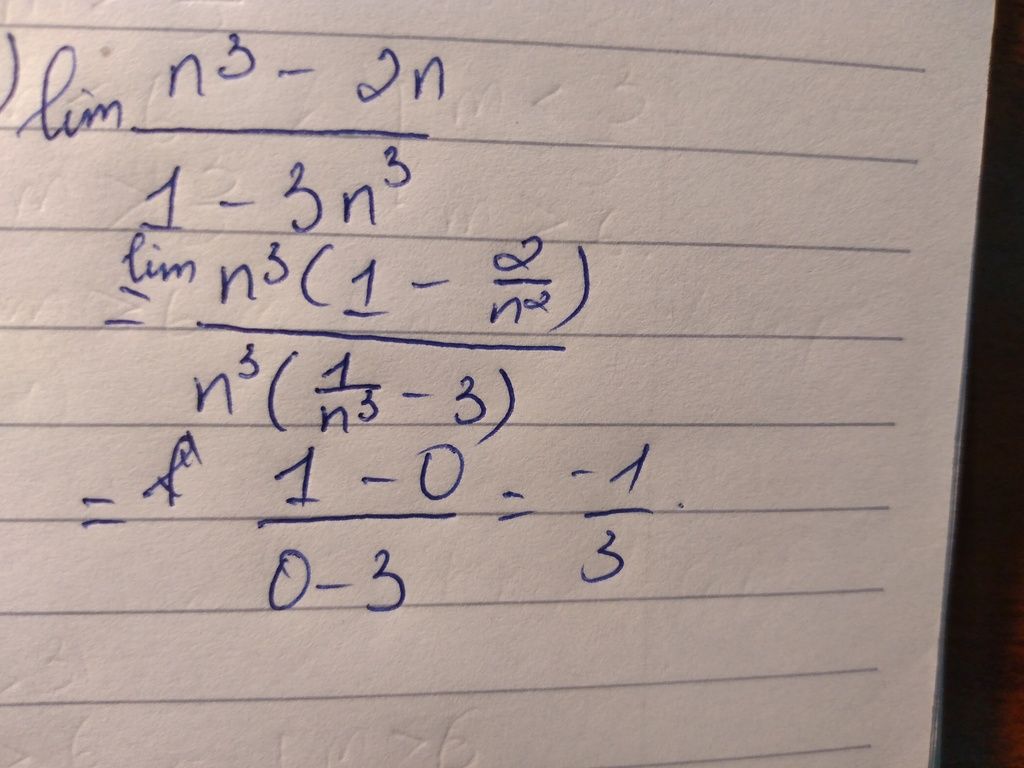 ) lim (n³ - 2n)/(1 - 3n³)
= lim (n³(1 - 2/n²))/(n³(1/n³ - 3))
= (1 - 0)/(0 - 3) = (-1)/3.